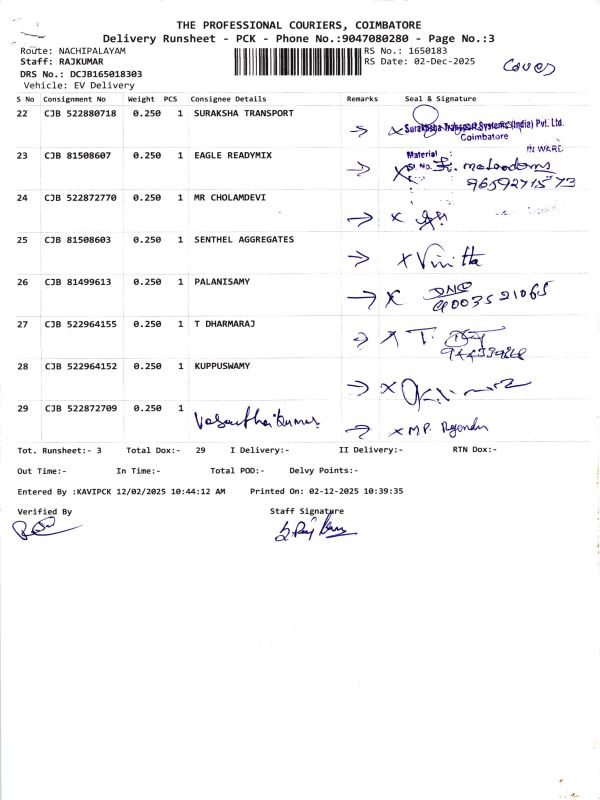 THE PROFESSIONAL COURIERS, COIMBATORE
Delivery Runsheet - PCK - Phone No.:9047080280 - Page No.:3
Route: NACHIPALAYAM RS No.: 1650183
Staff: RAJKUMAR RS Date: 02-Dec-2025
Cover
DRS No.: DCJB165018303
Vehicle: EV Delivery
S No Consignment No Weight PCS Consignee Details Remarks Seal & Signature
22 CJB 522880718 0.250 1 SURAKSHA TRANSPORT
Suraksha Transport Systems (India) Pvt. Ltd.
Coimbatore
IN WARD
23 CJB 81508607 0.250 1 EAGLE READYMIX
Material :
Sl. No.
9659271573
24 CJB 522872770 0.250 1 MR CHOLAMDEVI
25 CJB 81508603 0.250 1 SENTHEL AGGREGATES
x Vinitta
26 CJB 81499613 0.250 1 PALANISAMY
27 CJB 522964155 0.250 1 T DHARMARAJ
28 CJB 522964152 0.250 1 KUPPUSWAMY
29 CJB 522872709 0.250 1 Vasanthaikumar
x MP.
Tot. Runsheet:- 3 Total Dox:- 29 I Delivery:- II Delivery:- RTN Dox:-
Out Time:- In Time:- Total POD:- Delvy Points:-
Entered By :KAVIPCK 12/02/2025 10:44:12 AM Printed On: 02-12-2025 10:39:35
Verified By Staff Signature